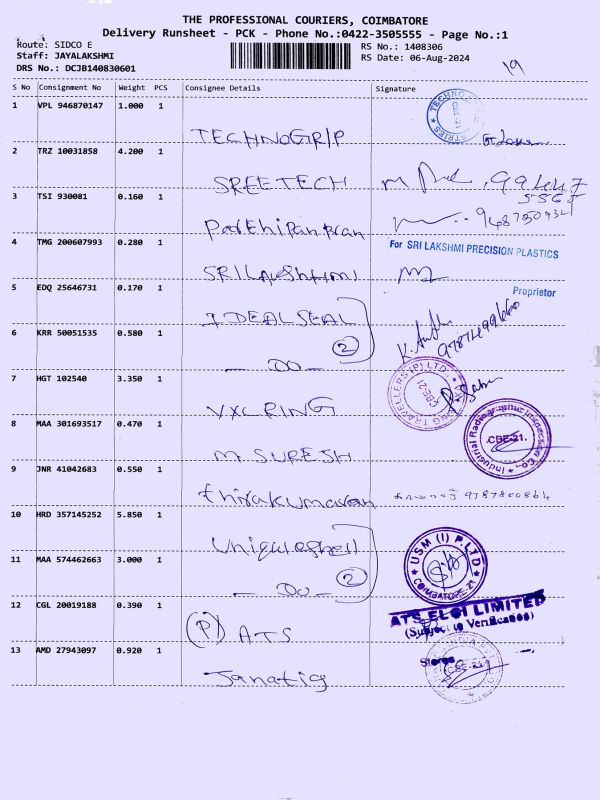 THE PROFESSIONAL COURIERS, COIMBATORE
Delivery Runsheet - PCK - Phone No.:0422-3505555 - Page No.:1
Route: SIDCO E
RS No.: 1408306
Staff: JAYALAKSHMI
RS Date: 06-Aug-2024
DRS No.: DCJB140830601
19
S No Consignment No Weight PCS Consignee Details Signature
1 VPL 946870147 1.000 1
TECHNOGRIP
2 TRZ 10031858 4.200 1
SREETECH
3 TSI 930081 0.160 1
4 TMG 200607993 0.280 1
For SRI LAKSHMI PRECISION PLASTICS
SRILAKSHMI
Proprietor
5 EDQ 25646731 0.170 1
IDEALSEAL
2
6 KRR 50051535 0.580 1
DO
7 HGT 102540 3.350 1
VXL RING
8 MAA 301693517 0.470 1
Industrial Radiographic Inspection Co.,
CBE-21.
M SURESH
9 JNR 41042683 0.550 1
thirukumaran
10 HRD 357145252 5.850 1
USM (I) P.LTD
COIMBATORE-21
Uniqueshell
11 MAA 574462663 3.000 1
DO
2
12 CGL 20019188 0.390 1
ATS ELGI LIMITED
(Subject to Verification)
(P) ATS
13 AMD 27943097 0.920 1
Stores
Janatig